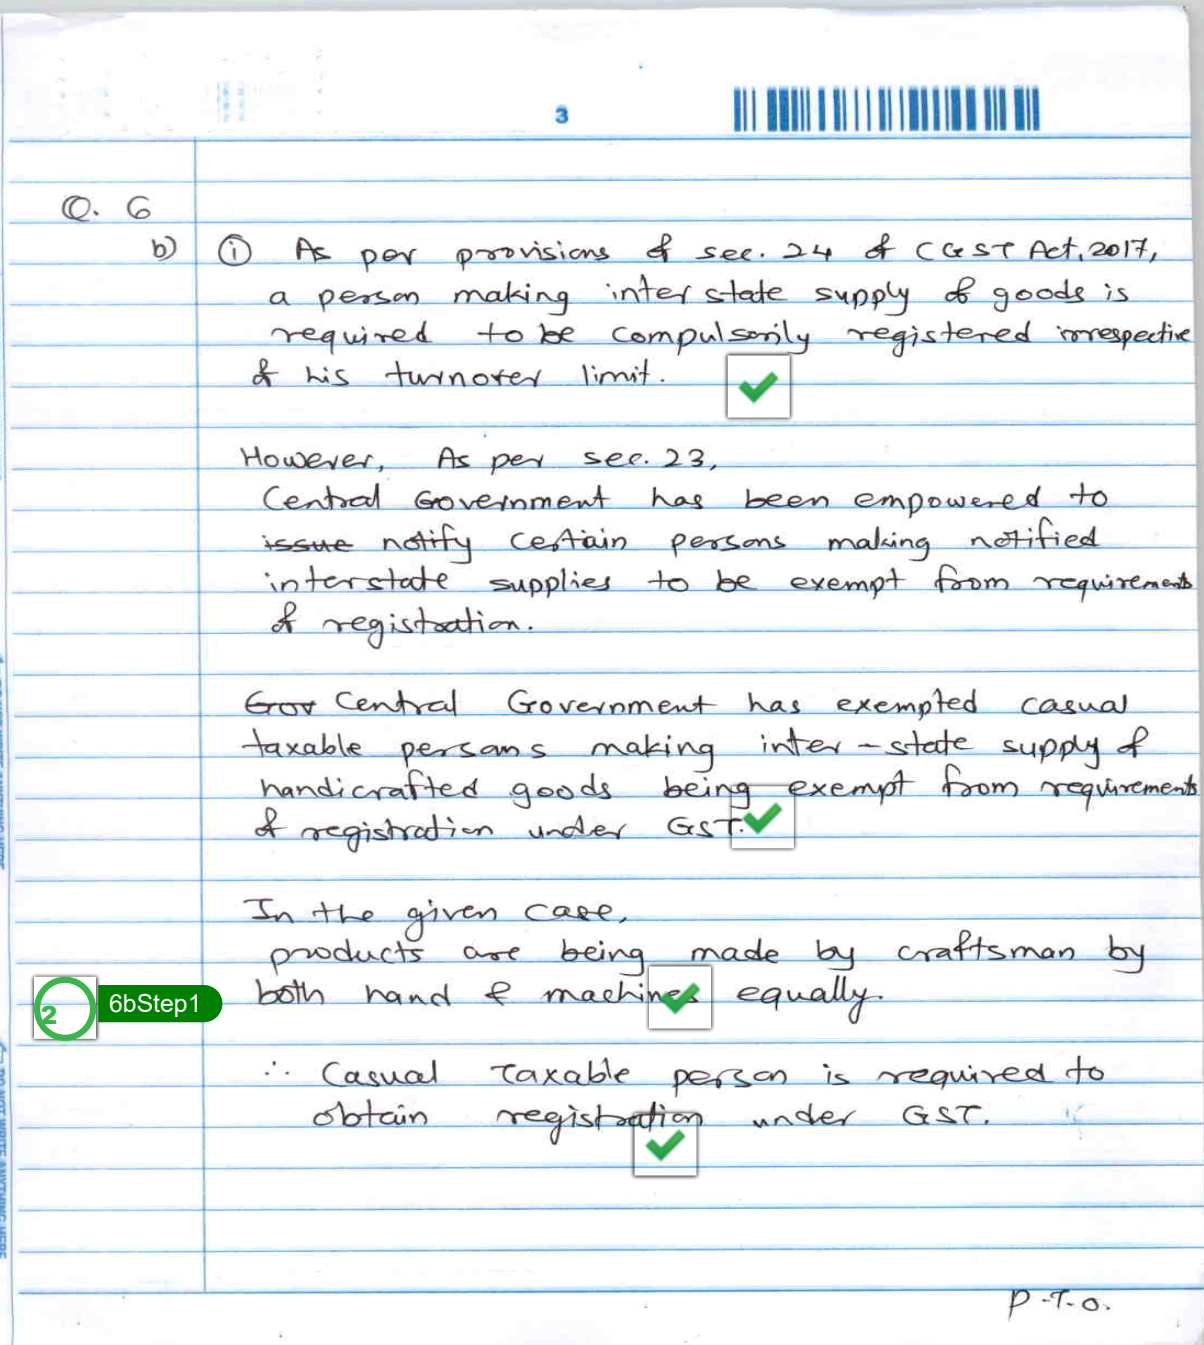 3
Q. 6
b) (i) As per provisions of sec. 24 of CGST Act, 2017,
a person making inter state supply of goods is
required to be compulsorily registered irrespective
of his turnover limit.
However, As per sec. 23,
Central Government has been empowered to
issue notify certain persons making notified
interstate supplies to be exempt from requirements
of registration.
Gov Central Government has exempted casual
taxable persons making inter-state supply of
handicrafted goods being exempt from requirements
of registration under GST.
In the given case,
products are being made by craftsman by
both hand & machines equally.
2 6bStep1
∴ Casual Taxable person is required to
obtain registration under GST.
P.T.O.